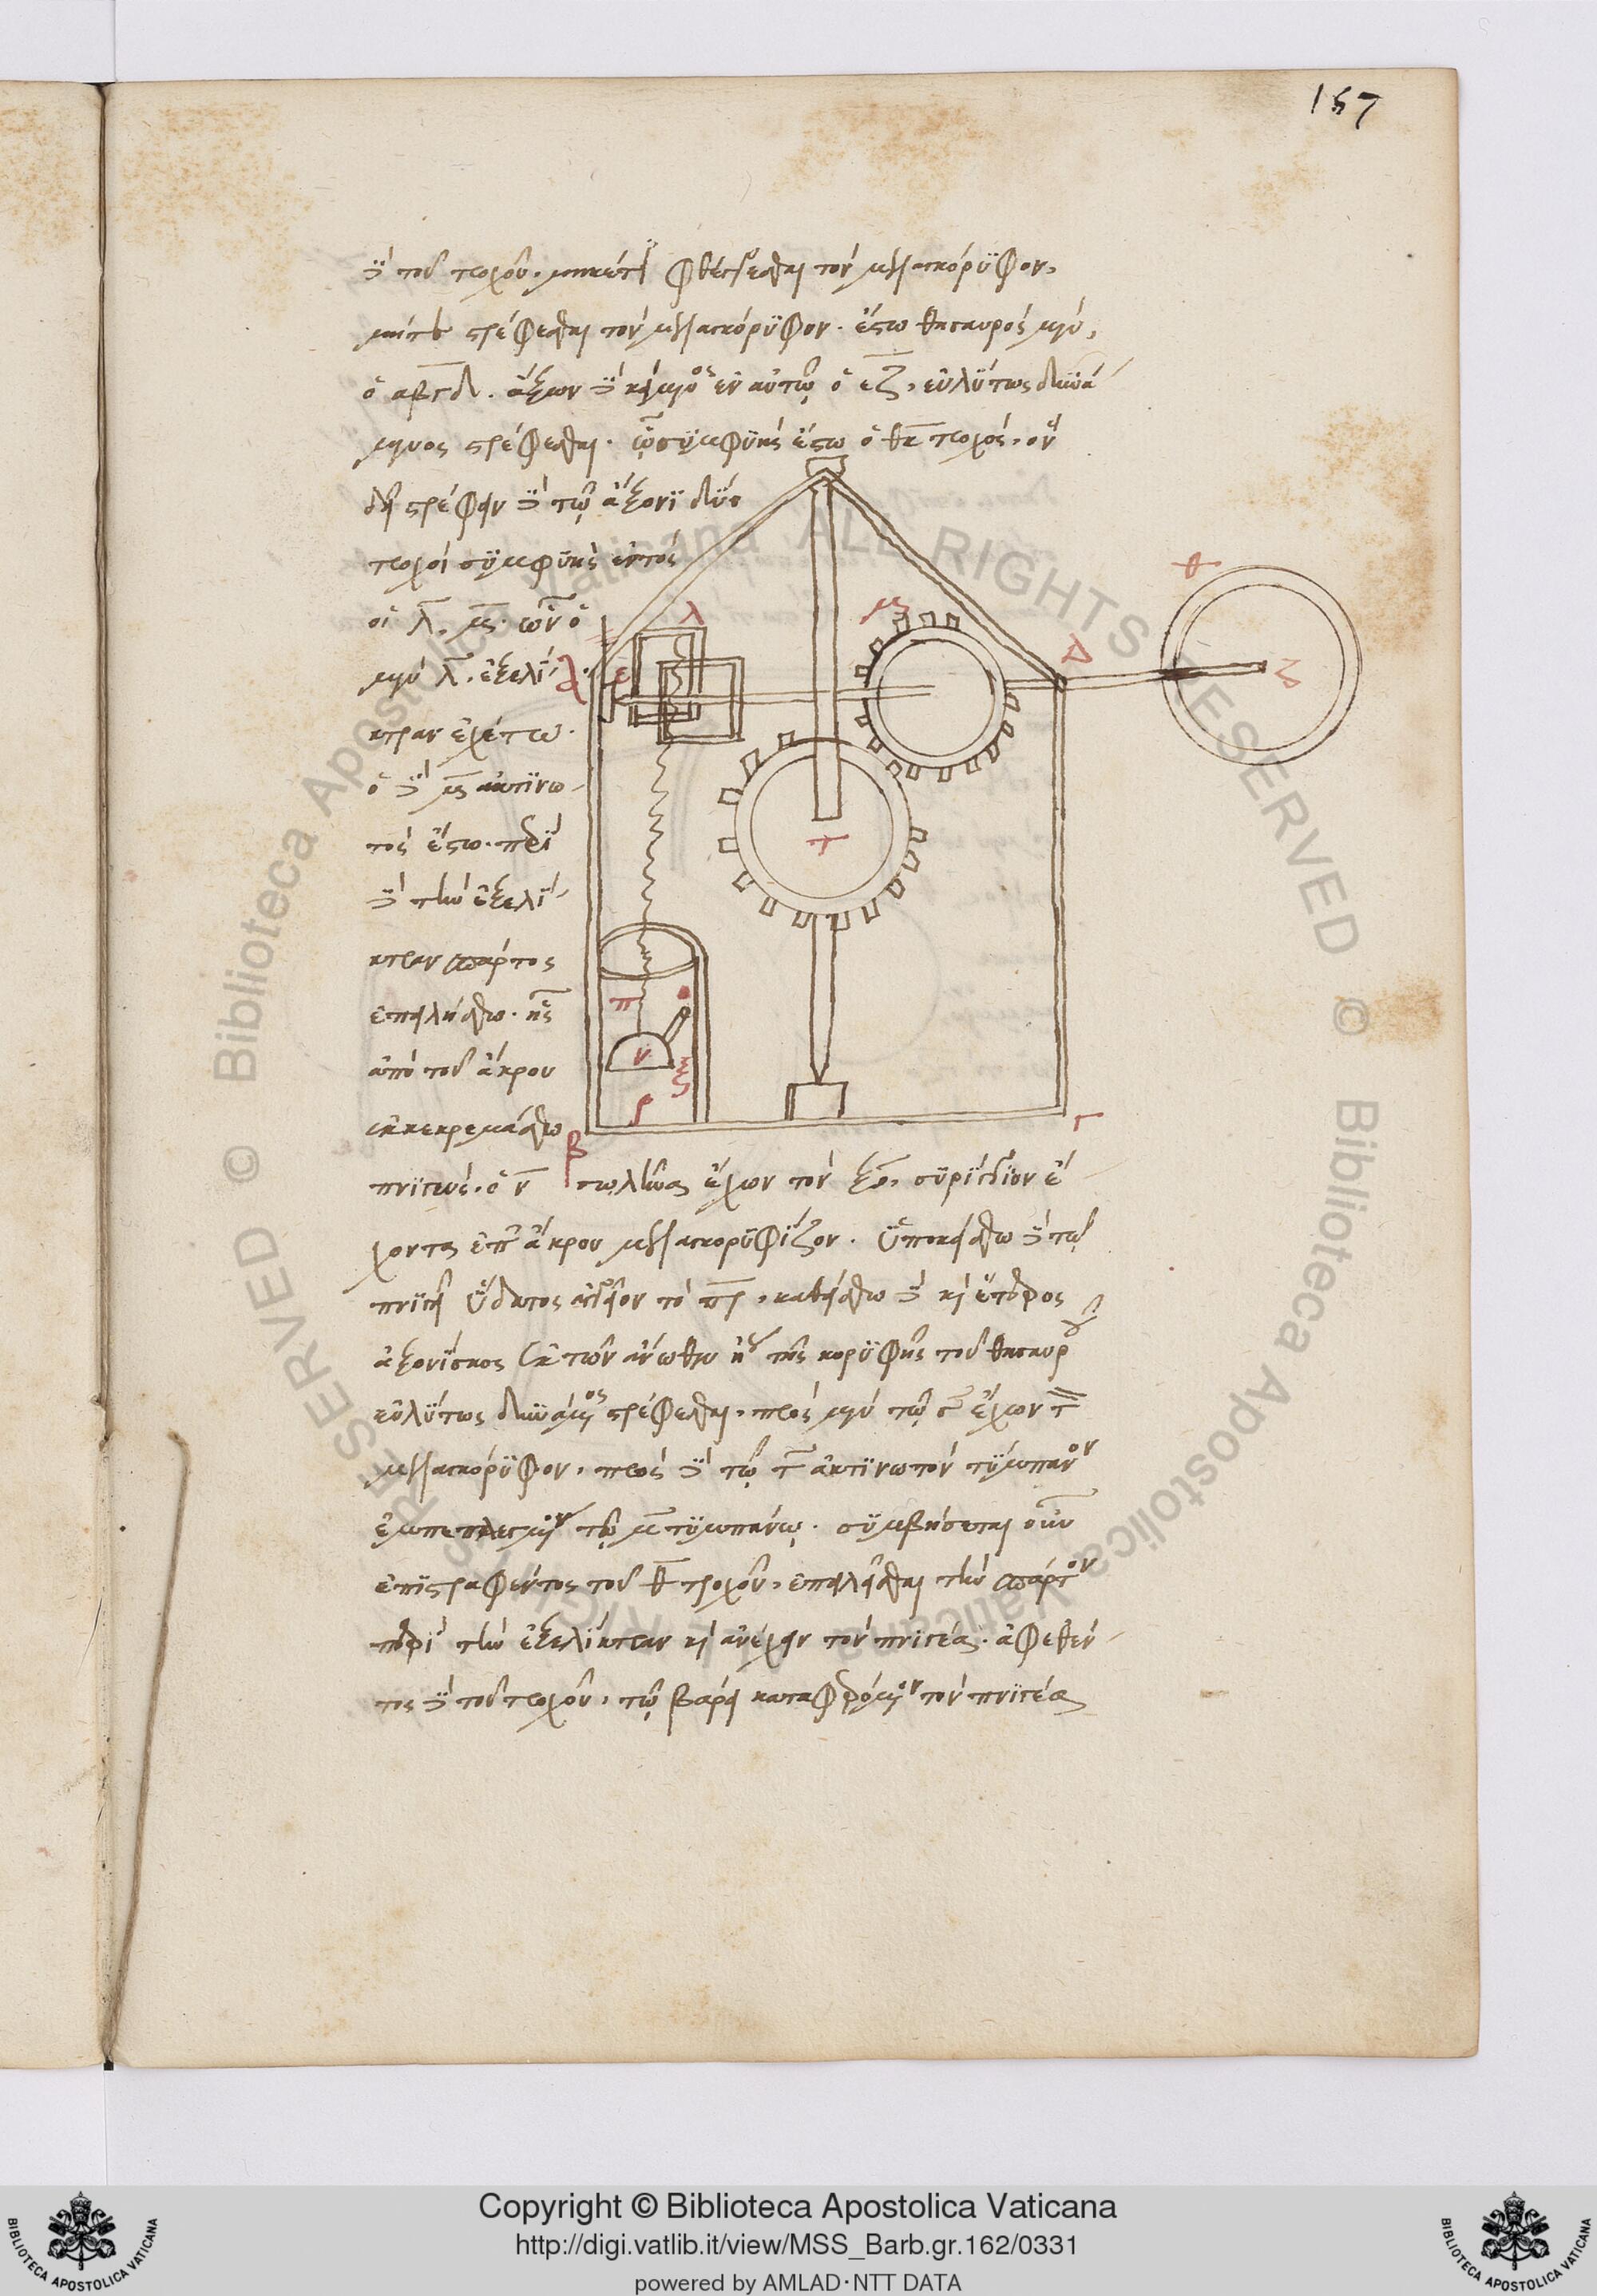 157
δὲ τοῦ τροχοῦ, μηκέτι φθέγγεσθαι τὸν μελαγκόρυφον,
μήτε στρέφεσθαι τὸν μελαγκόρυφον. ἔστω θησαυρὸς μὲν,
ὁ αβγδ. ἄξων δὲ κείμενος ἐν αὐτῷ ὁ εζ, εὐλύτως δυνά
μενος στρέφεσθαι. ᾧ συμφυὴς ἔστω ὁ θκ τροχός, ὃν
δεῖ στρέφειν δὲ τῷ ἄξονι δύο
τροχοὶ συμφυεῖς ἐντὸς
οἱ λ, μ. ὧν ὁ
μὲν λ, ἐξελί-
κτραν ἐχέτω.
ὁ δὲ μ ἀκτινω-
τὸς ἔστω. περὶ
δὲ τὴν ἐξελί-
κτραν σπάρτος
ἐπειλήσθω. ἧς
ἀπὸ τοῦ ἄκρου
ἐκκεκρεμάσθω
πνιγεὺς, ὁ ν σωλῆνα ἔχων τὸν ξο, συρίγγιον ἔ-
χοντα ἐπ' ἄκρου μελαγκορυφίζον. ὑποκείσθω δὲ τῷ
πνιγεῖ ὕδατος ἀγγεῖον τὸ πρ, καθείσθω δὲ καὶ ἕτερος
ἀξονίσκος ἐκ τῶν ἄνωθεν τῆς κορυφῆς τοῦ θησαυροῦ
εὐλύτως δυνάμενος στρέφεσθαι, πρὸς μὲν τῷ σ ἔχων τ
μελαγκόρυφον, πρὸς δὲ τῷ τ ἀκτινωτὸν τύμπανον
ἐμπεπλεγμένον τῷ μ τυμπάνῳ. συμβήσεται οὖν
ἐπιστραφέντος τοῦ θ τροχοῦ, ἐπειλεῖσθαι τὴν σπάρτον
περὶ τὴν ἐξελίκτραν καὶ ἀνέχειν τὸν πνιγέα. ἀφεθέν-
τος δὲ τοῦ τροχοῦ, τῷ βάρει καταφερόμενον τὸν πνιγέα
θ
λ
μ
Δ
ε
ζ
α
τ
π
ο
ν
ξ
ρ
β
Γ
Copyright © Biblioteca Apostolica Vaticana
http://digi.vatlib.it/view/MSS_Barb.gr.162/0331
powered by AMLAD·NTT DATA
BIBLIOTECA APOSTOLICA VATICANA
BIBLIOTECA APOSTOLICA VATICANA
© Biblioteca Apostolica Vaticana ALL RIGHTS RESERVED © Biblioteca Apostolica Vaticana ALL RIGHTS RESERVED